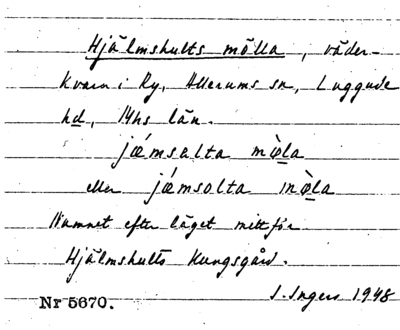 Hjälmshults mölla, väder-
kvarn i Ry, Allerums sn, Luggude
hd, Mhs län.
jǽmsalta mø̀la
eller jǽmsolta mø̀la
Namnet efter läget mitt för
Hjälmshults Kungsgård.
Nr 5670. I. Ingers 1948